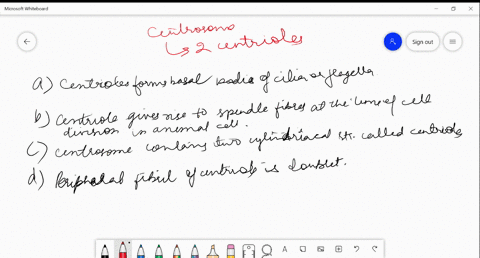 Microsoft Whiteboard
Sign out
Centrosome
↳ 2 centrioles
a) Centrioles forms basal bodie of cilia or flagella
b) Centriole gives rise to spindle fibres at the time of cell
division in animal cell.
c) Centrosome contains two cylindrical str. called centriole
d) Peripheral fibril of centriole is doublet.